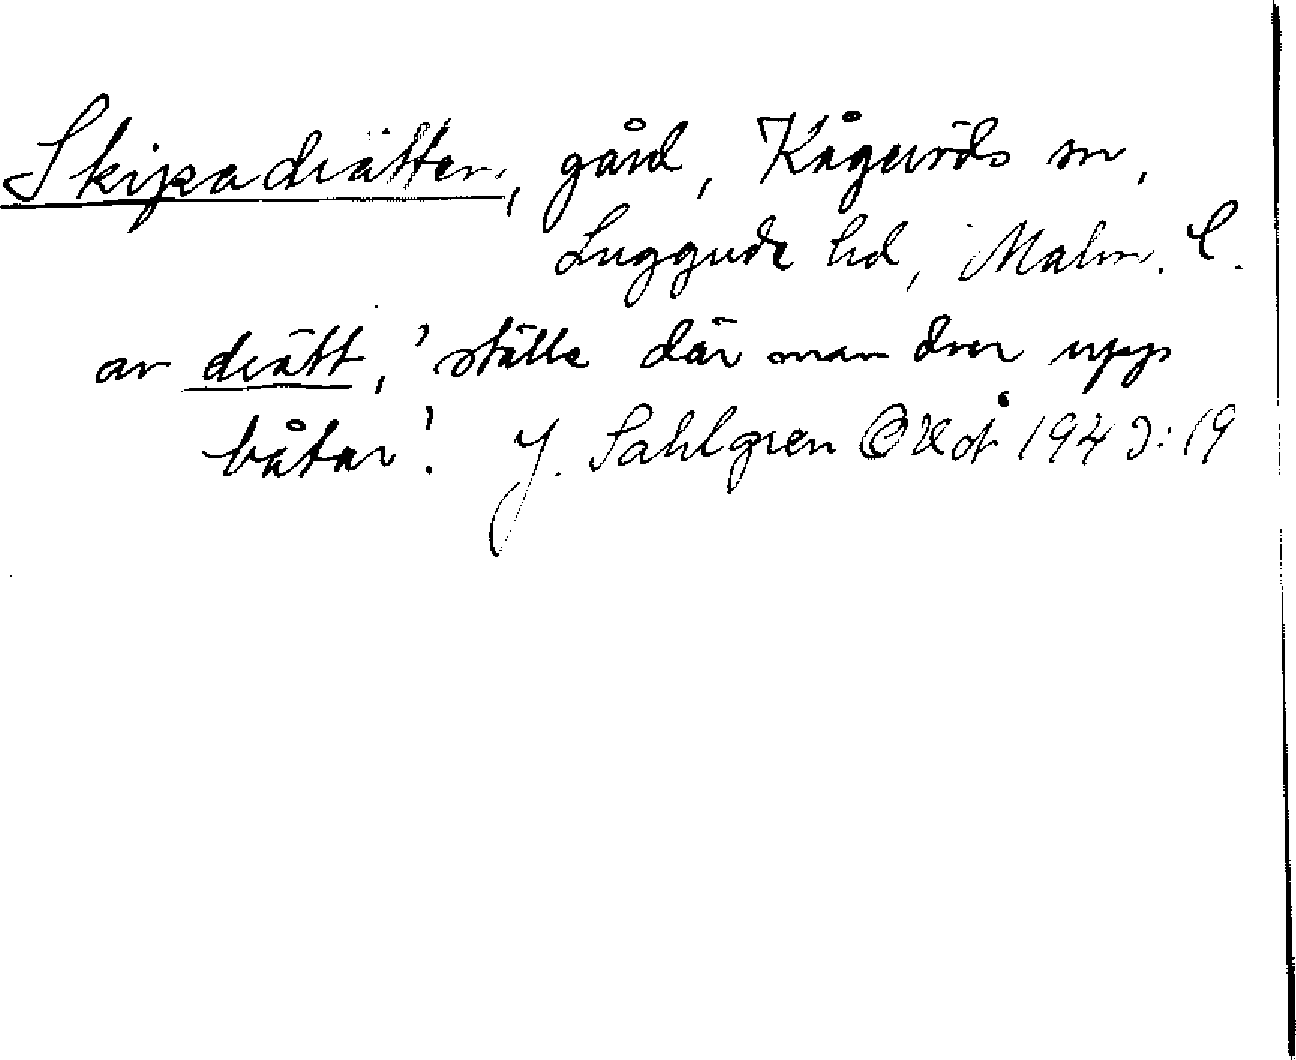 Skipadrätten, gård, Kågeröds sn,
Luggude hd, Malm. l.
av drätt, 'ställe där man drar upp
båtar'. J. Sahlgren 1943:19